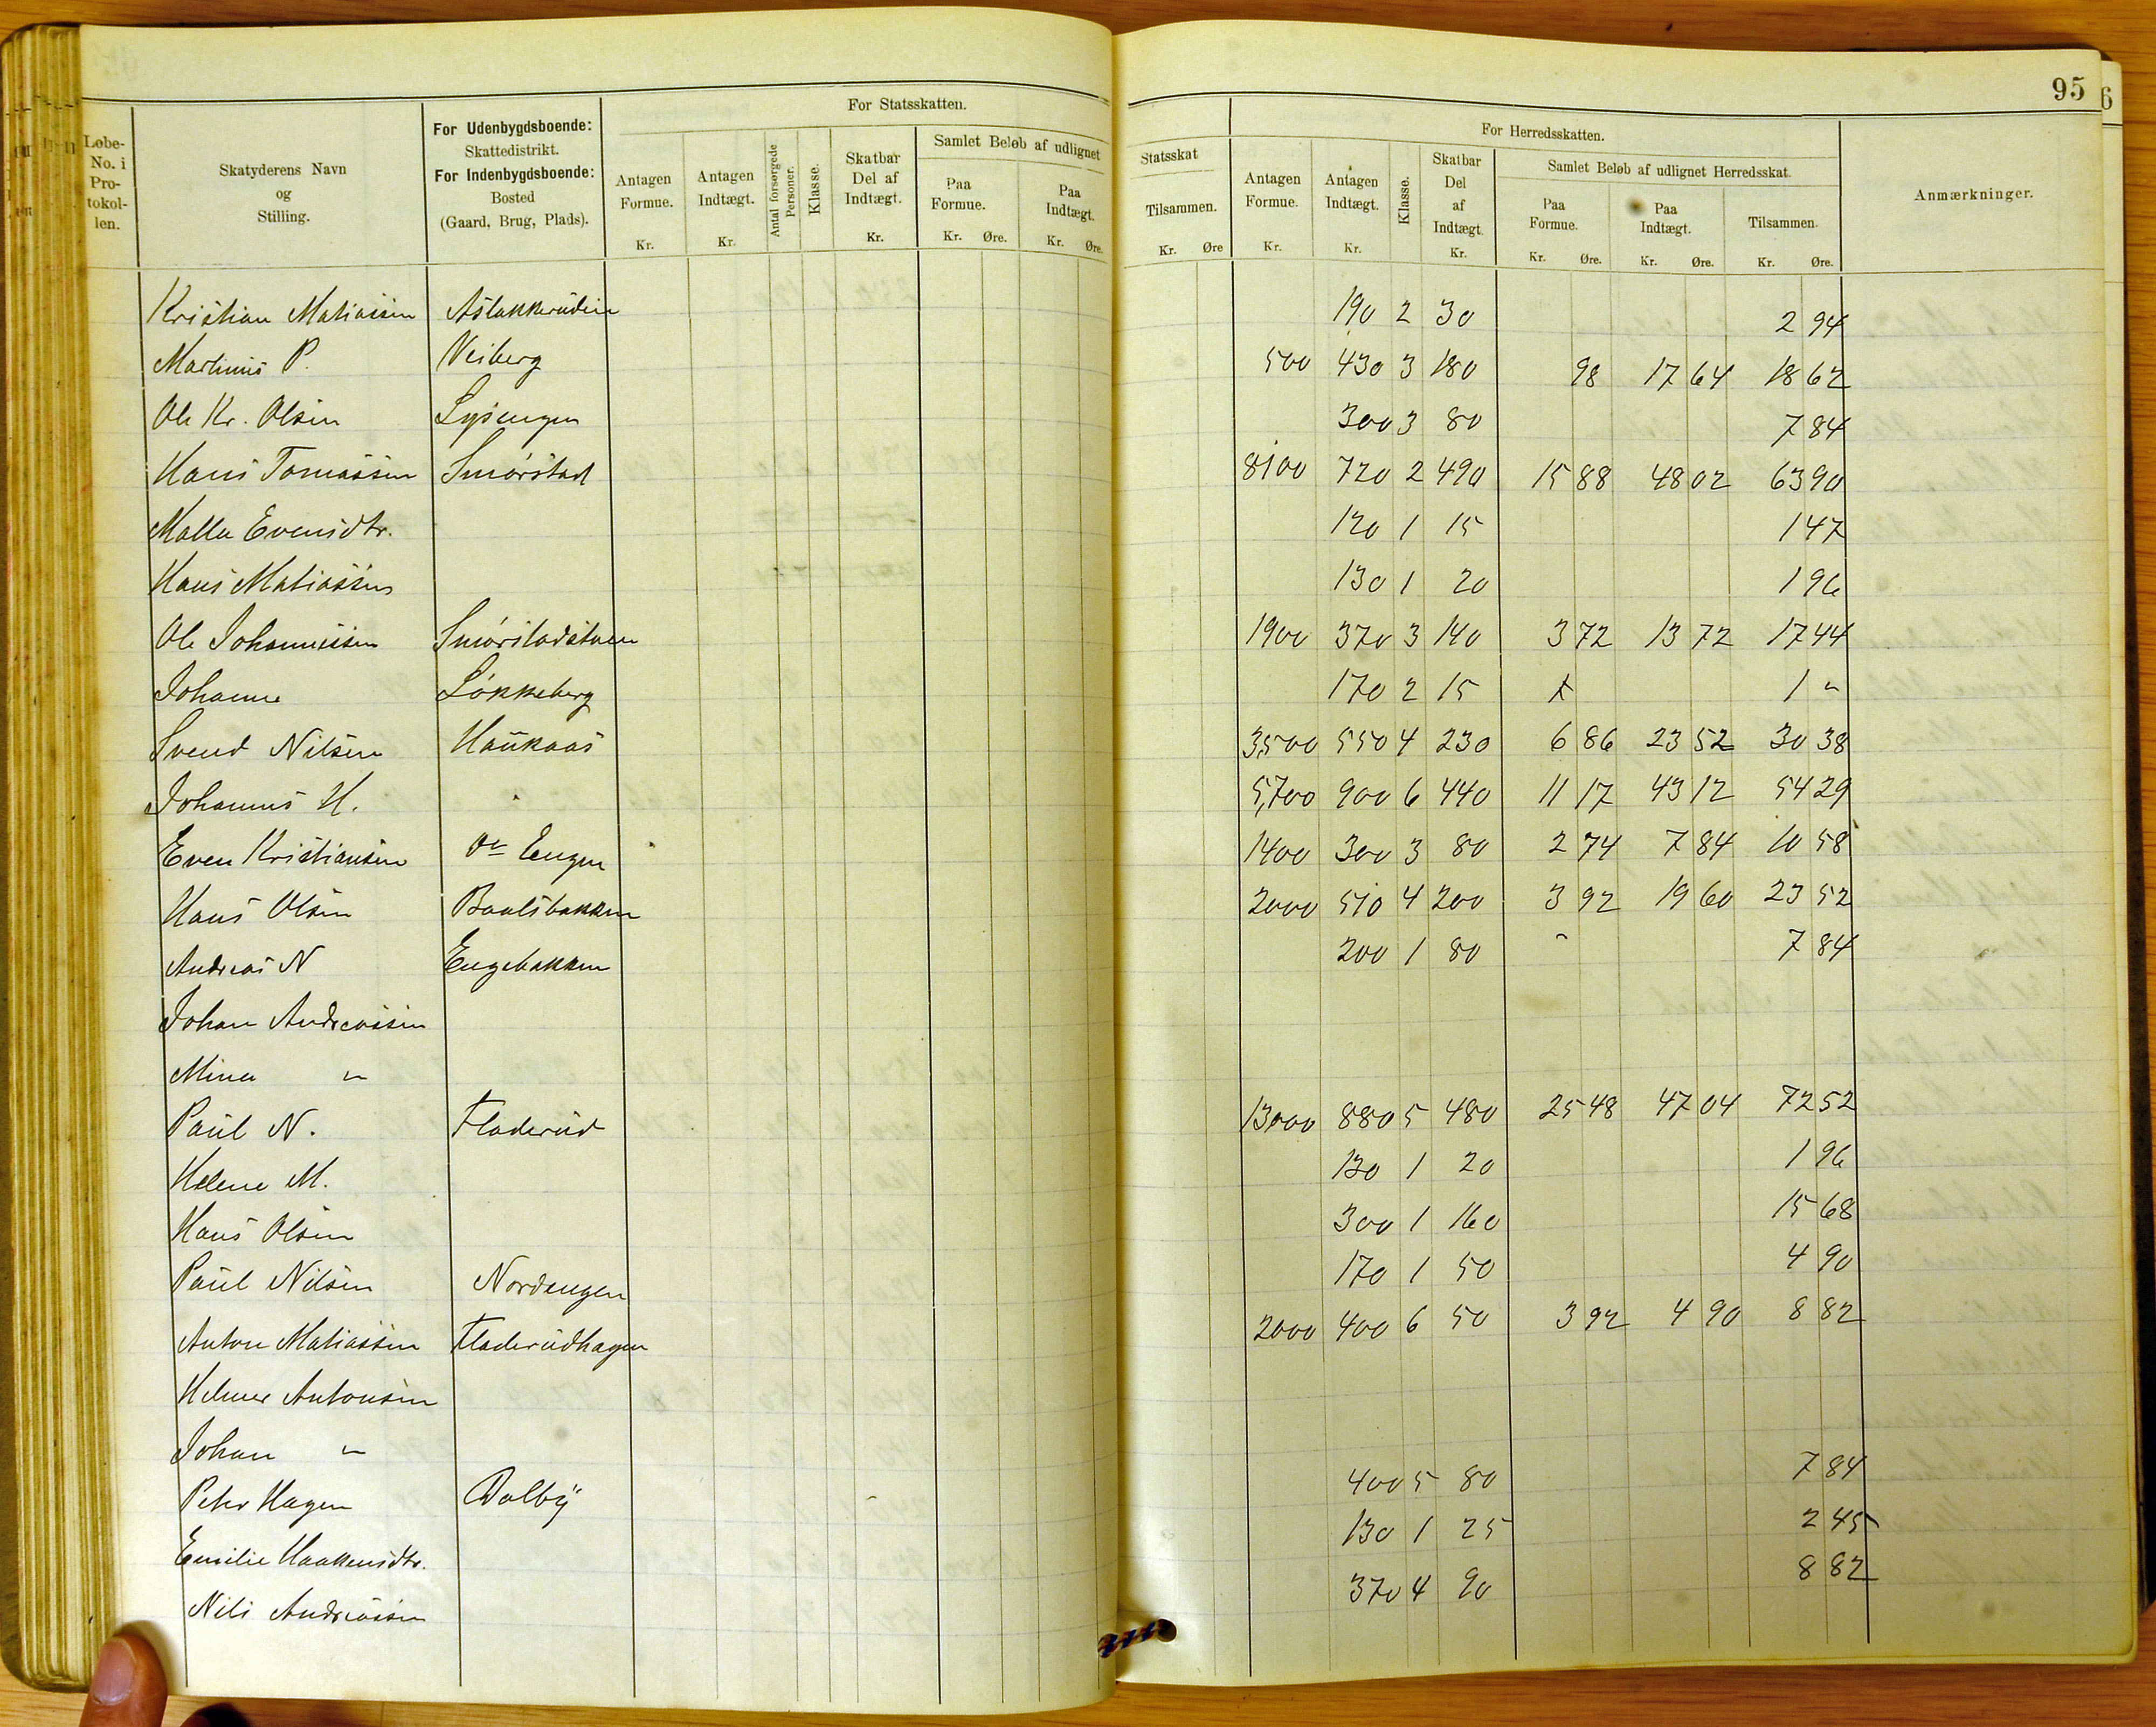 95
6
Løbe-No. i Pro-tokol-len.
Skatyderens Navn og Stilling.
For Udenbygdsboende: Skattedistrikt. For Indenbygdsboende: Bosted (Gaard, Brug, Plads).
For Statsskatten.
Antagen Formue. Kr.
Antagen Indtægt. Kr.
Antal forsørgede Personer.
Klasse.
Skatbar Del af Indtægt. Kr.
Samlet Beløb af udlignet
Paa Formue. Kr. Øre.
Paa Indtægt. Kr. Øre.
Statsskat
Tilsammen. Kr. Øre
For Herredsskatten.
Antagen Formue. Kr.
Antagen Indtægt. Kr.
Klasse.
Skatbar Del af Indtægt. Kr.
Samlet Beløb af udlignet Herredsskat.
Paa Formue. Kr. Øre.
Paa Indtægt. Kr. Øre.
Tilsammen. Kr. Øre.
Anmærkninger.
Kristian Matiassen Aslakkerudein 190 2 30 2 94
Martinus P. Veiberg 500 430 3 180 98 17 64 18 62
Ole Kr. Olsen Lysengen 300 3 80 7 84
Hans Tomassen Smørstad 8100 720 2 490 15 88 48 02 63 90
Malla Evensdtr. 120 1 15 1 47
Hans Matiassen 130 1 20 1 96
Ole Johannessen Smørstadstuen 1900 370 3 140 3 72 13 72 17 44
Johanne Løkkeberg 170 2 15 1 "
Svend Nilsen Haukaas 3,500 550 4 230 6 86 23 52 30 38
Johannes H. 5,700 900 6 440 11 17 43 12 54 29
Even Kristiansen do Engen 1400 300 3 80 2 74 7 84 10 58
Hans Olsen Baalsbakken 2000 510 4 200 3 92 19 60 23 52
Andreas N Engebakken 200 1 80 7 84
Johan Andreassen
Mina "
Paul N. Fladerud 13000 880 5 480 25 48 47 04 72 52
Helene M. 130 1 20 1 96
Hans Olsen 300 1 160 15 68
Paul Nilsen Nordengen 170 1 50 4 90
Anton Matiassen Fladerudhagen 2000 400 6 50 3 92 4 90 8 82
Helmer Antonsen
Johan "
Peter Hagen Dalby 400 5 80 7 84
Emilie Haakensdtr. 130 1 25 2 45
Nils Andreassen 370 4 90 8 82